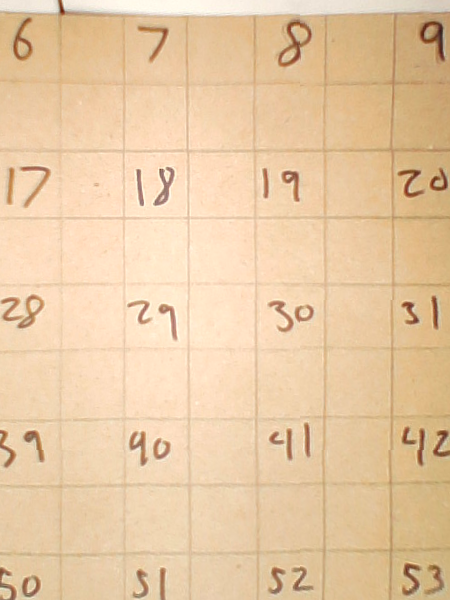 6 7 8 9
17 18 19 20
28 29 30 31
39 40 41 42
50 51 52 53